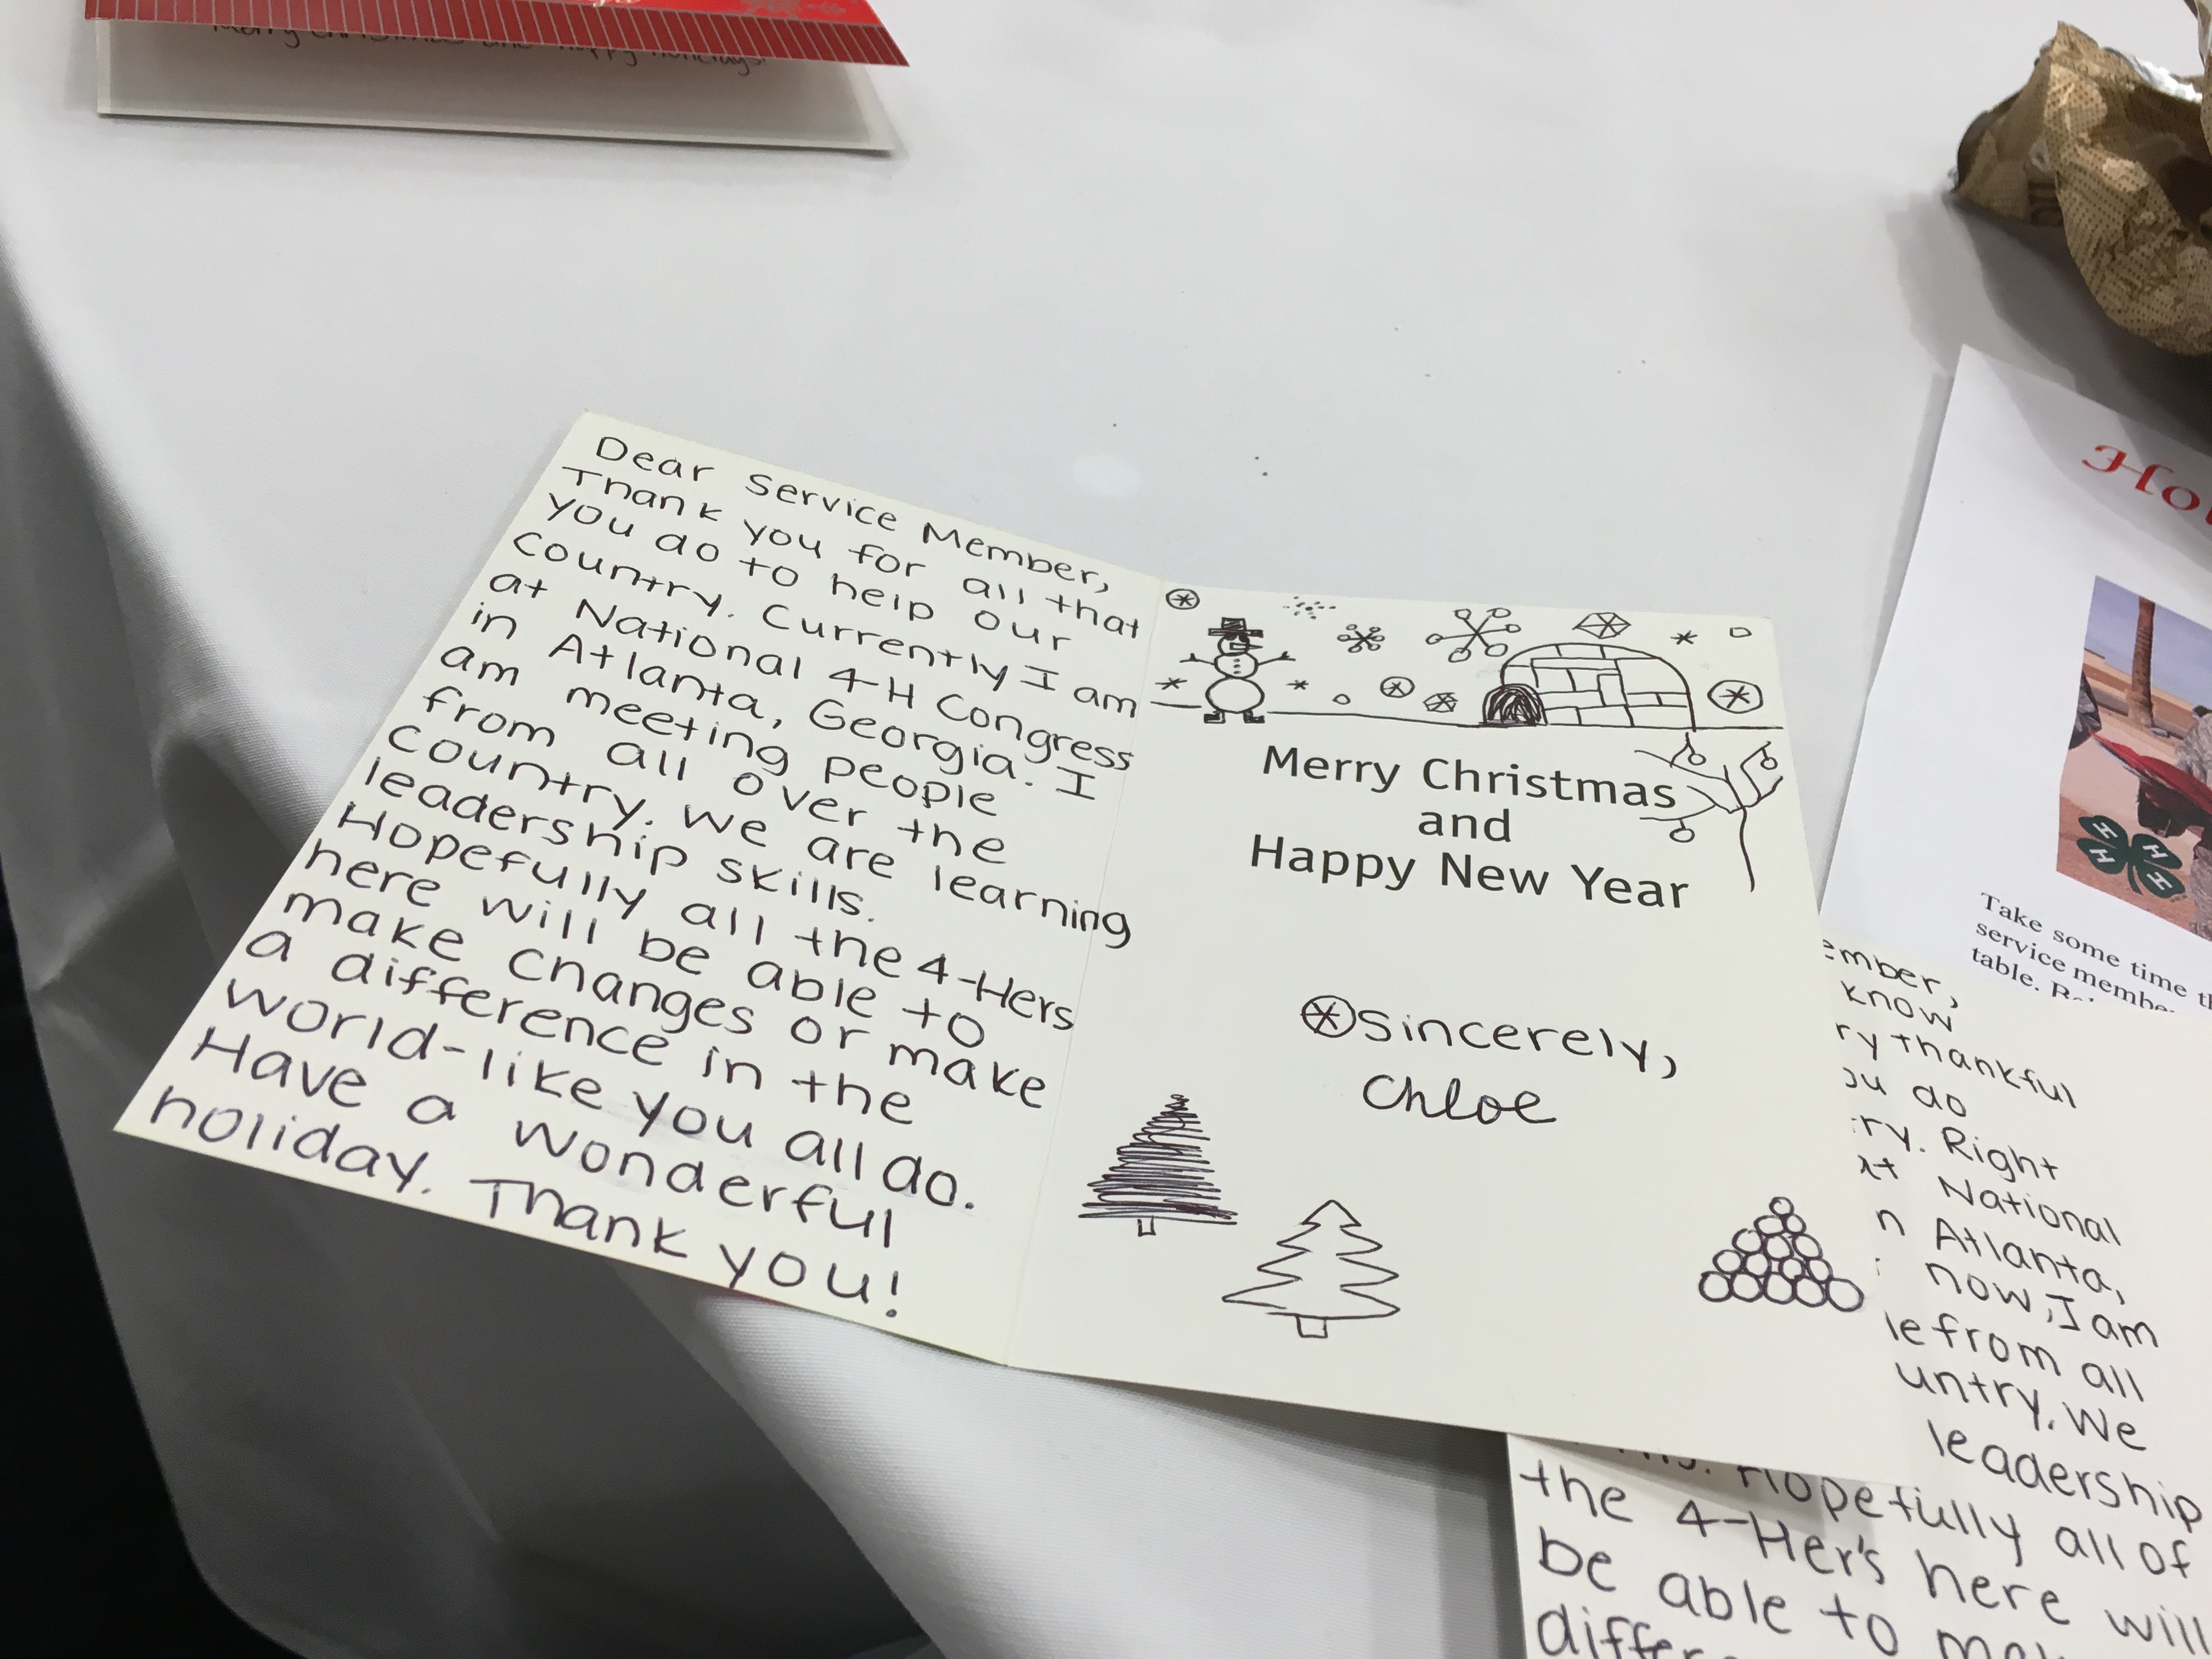 Merry Christmas and Happy Holidays!
Dear Service Member,
Thank you for all that
you do to help our
country. Currently I am
at National 4-H Congress
in Atlanta, Georgia. I
am meeting people
from all over the
country. We are learning
leadership skills.
Hopefully all the 4-Hers
here will be able to
make changes or make
a difference in the
world-like you all do.
Have a wonderful
holiday. Thank you!
Merry Christmas
and
Happy New Year
Sincerely,
Chloe
H H H H
Take some time
service
table.
know
thankful
do
Right
National
Atlanta,
now, I am
from all
We
leadership
Hopefully all of
the 4-Her's here will
be able to